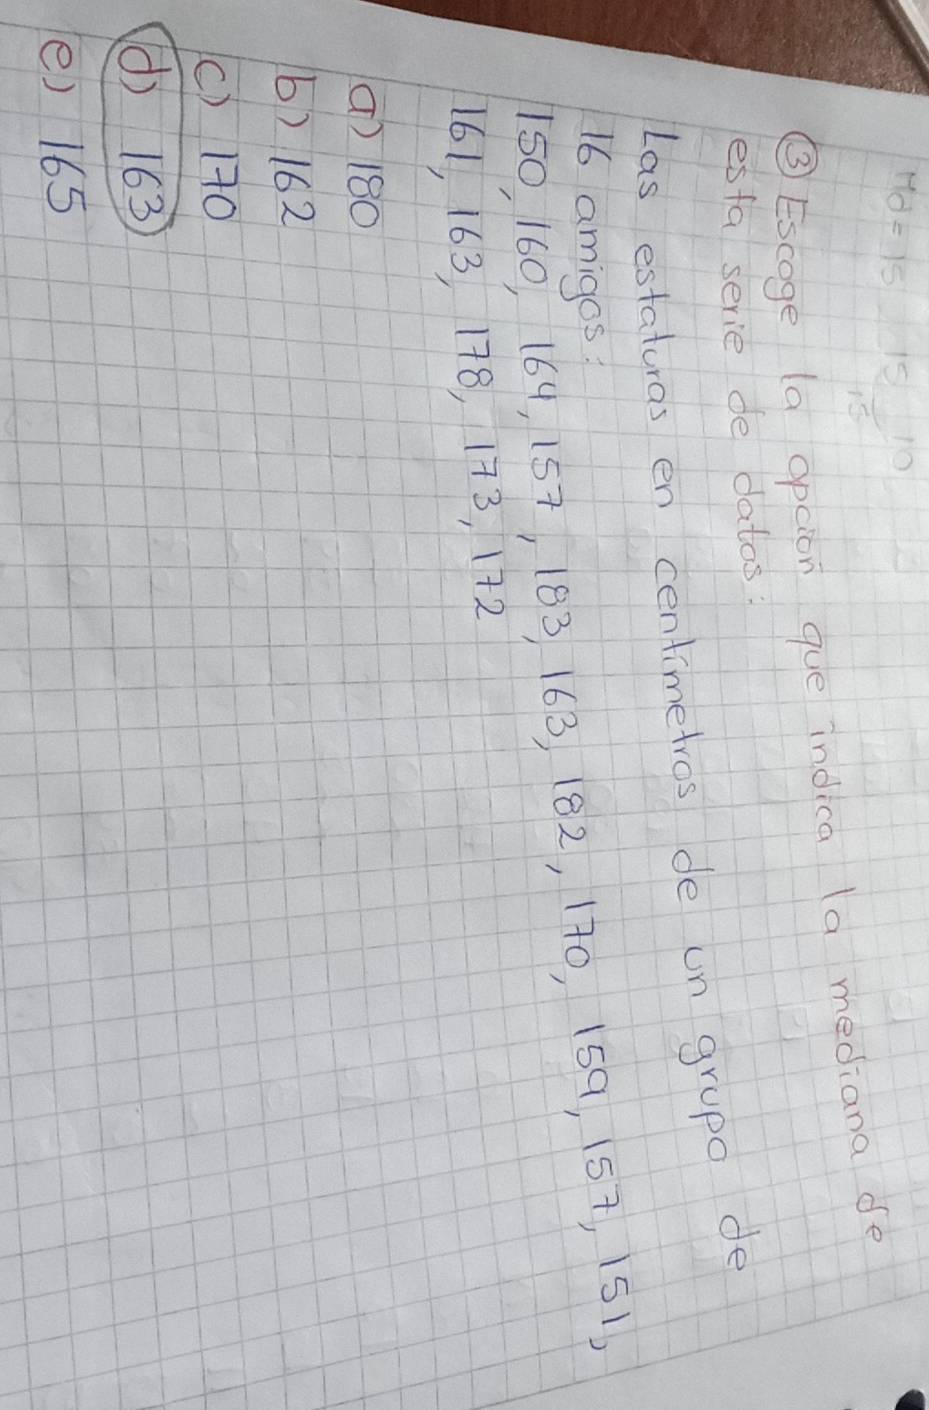 Md = 15 15 10
15
③ Escoge la opción que indica la mediana de
esta serie de datos:
Las estaturas en centímetros de un grupo de
16 amigos:
150, 160, 164, 157, 183, 163, 182, 170, 159, 157, 151,
161, 163, 178, 173, 172
a) 180
b) 162
c) 170
d) 163
e) 165